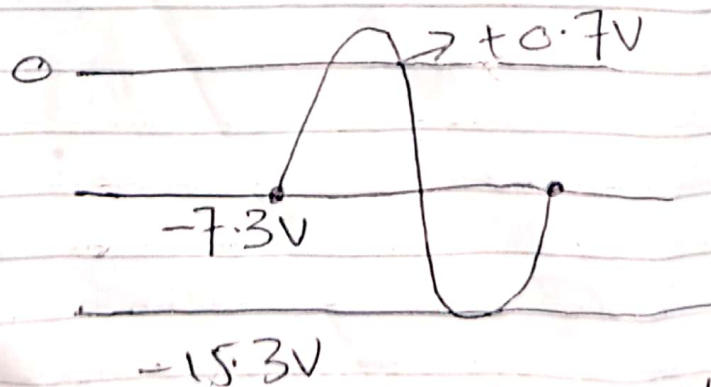 +0.7V
0
-7.3V
-15.3V